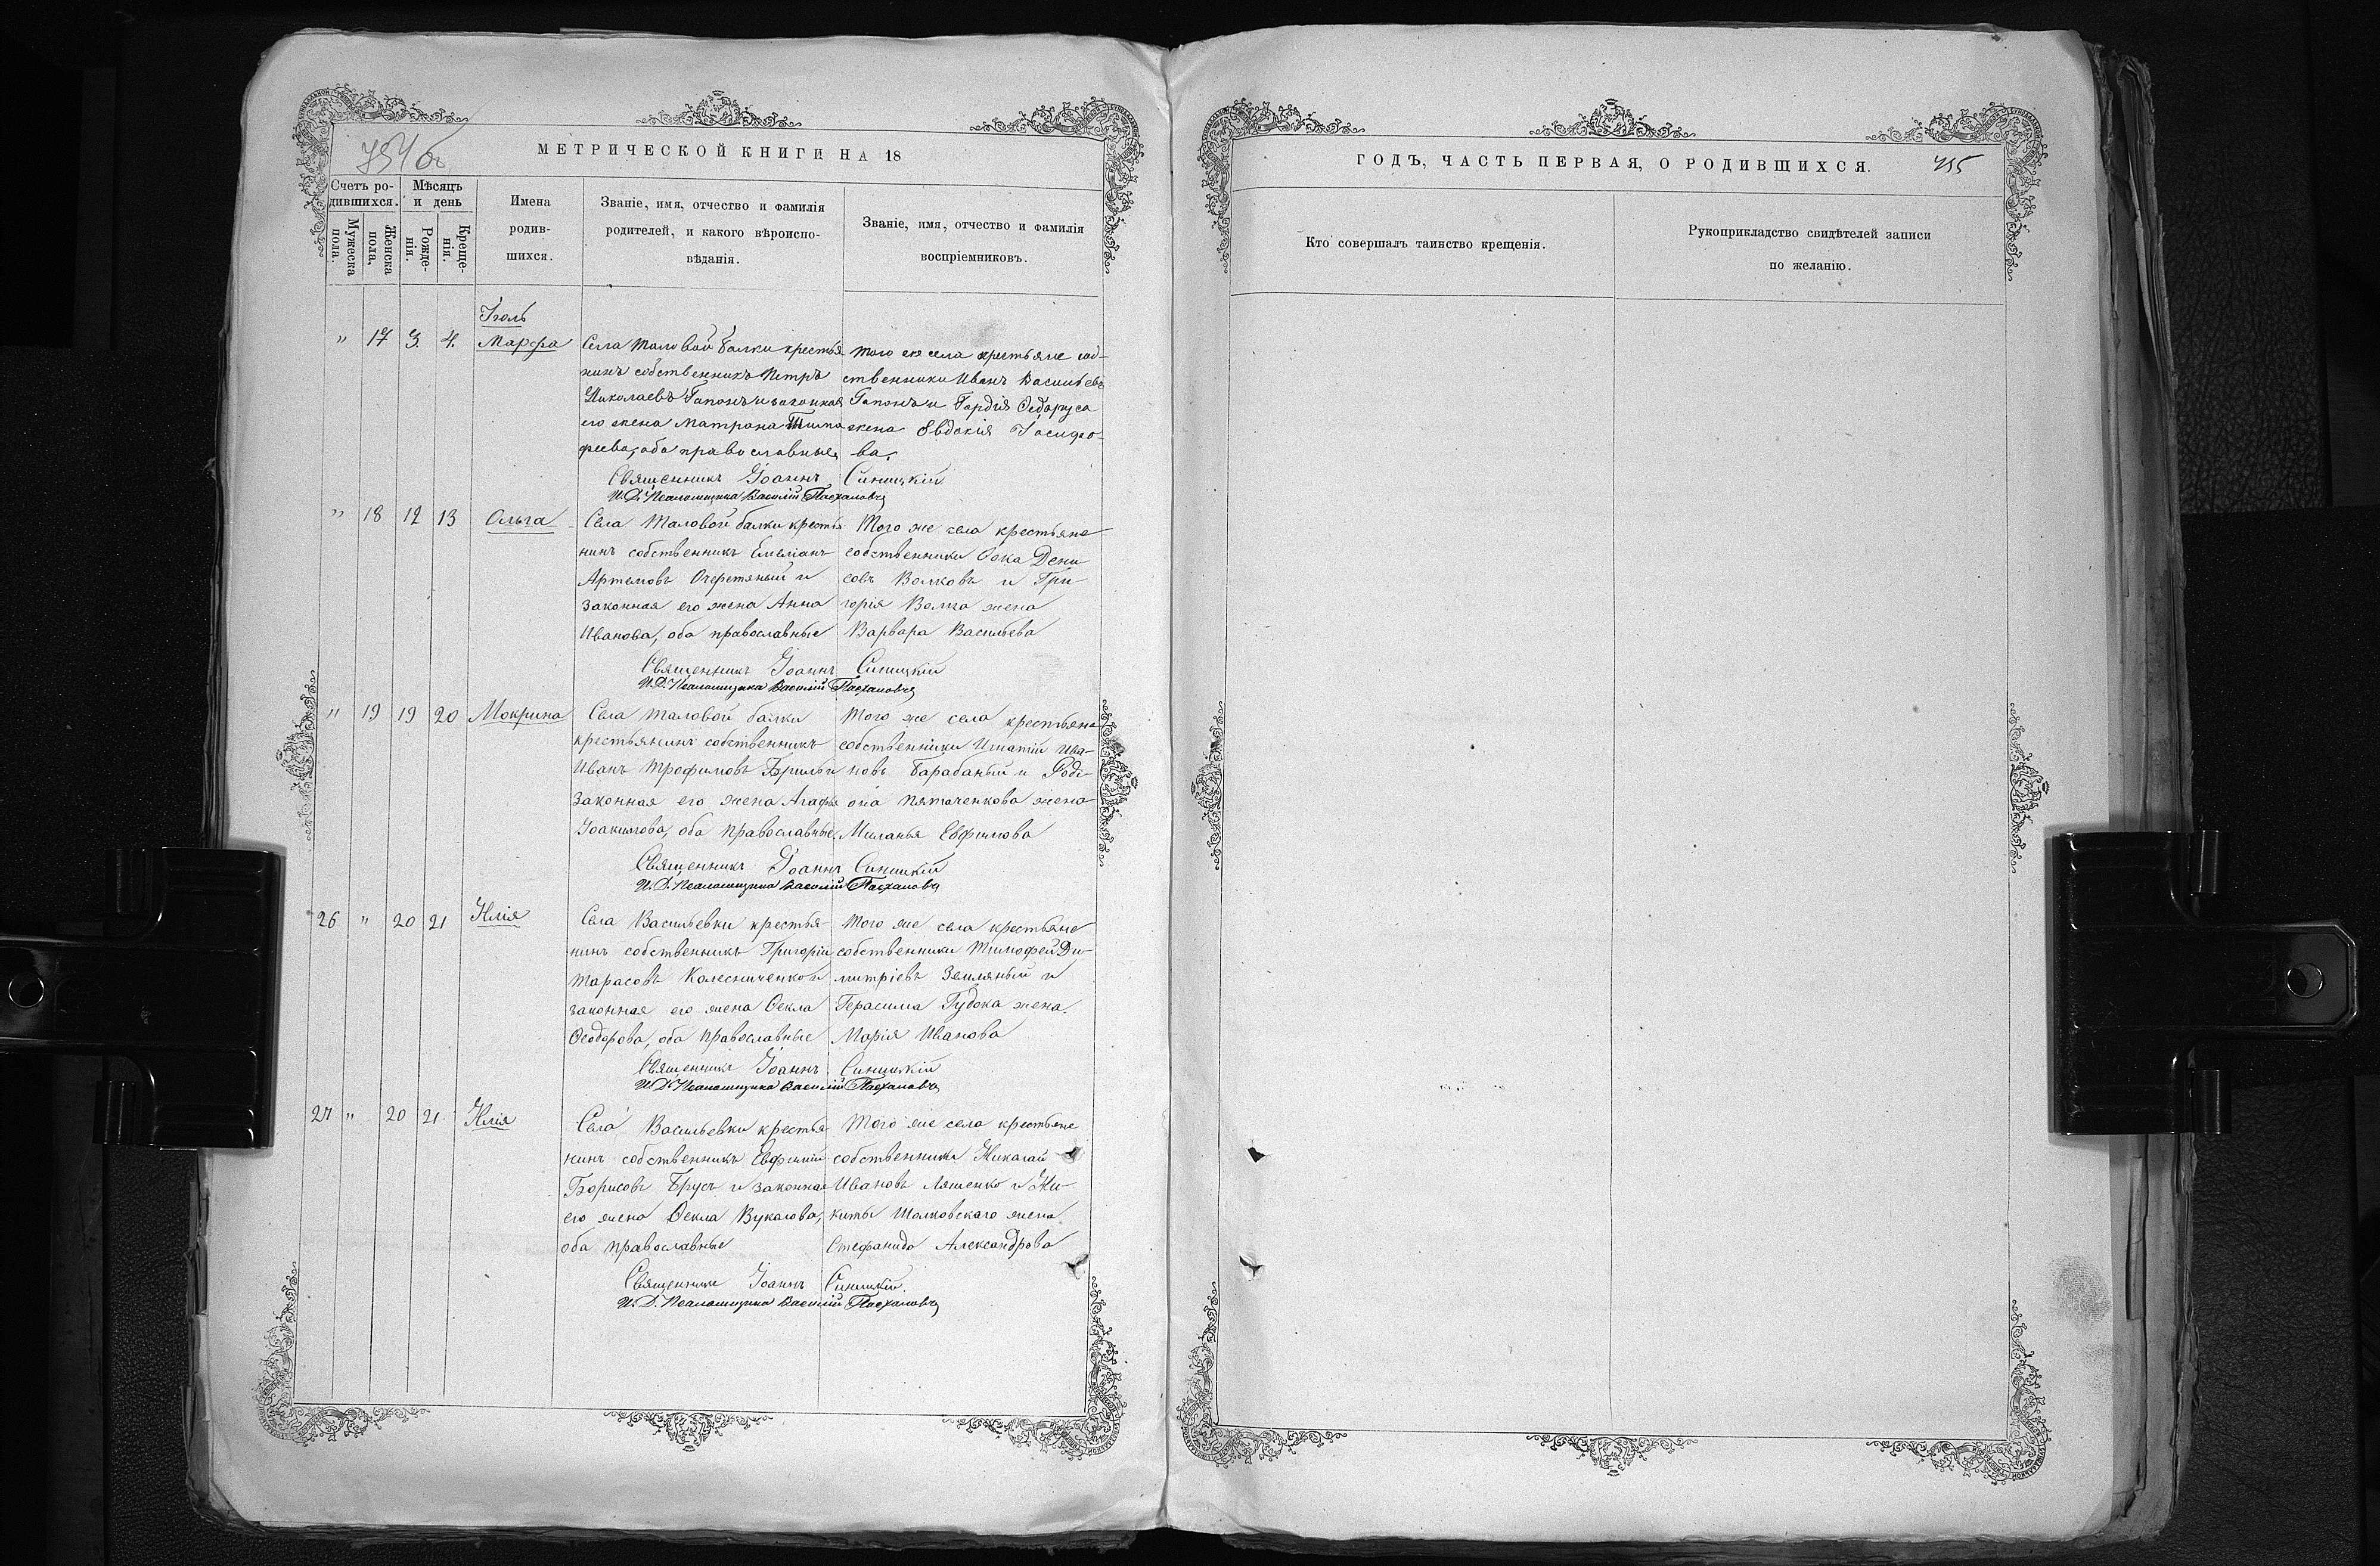 754 об
МЕТРИЧЕСКОЙ КНИГИ НА 18
Счетъ ро-
дившихся.
Мужеска
пола.
Женска
пола.
Мѣсяцъ
и день
Рожде-
нія.
Креще-
нія.
Имена
родив-
шихся.
Званіе, имя, отчество и фамилія
родителей, и какого вѣроиспо-
вѣданія.
Званіе, имя, отчество и фамилія
воспріемниковъ.
Іюль
" 17 3. 4. Марфа
Села Таловой балки крестья
нинъ собственникъ Петръ
Николаевъ Гапонъ и законная
его жена Матрона Тимо
феева, оба православные,
того же села крестьяне соб-
ственники Иванъ Васильевъ
Гапонъ и Гордія Федоруса
жена Евдокія Іосифо-
ва.
Священникъ Іоаннъ Синицкій
И. Д. Псаломщика Василій Пасхаловъ
" 18 12 13 Ольга
Села Таловой балки крестья
нинъ собственникъ Емеліанъ
Артемовъ Очеретяный и
законная его жена Анна
Иванова, оба православные
Того же села крестьяне
собственники Ѳока Дени
совъ Волковъ и Гри-
горія Волка жена
Варвара Васильева
Священникъ Іоаннъ Синицкій
И. Д. Псаломщика Василій Пасхаловъ
" 19 19 20 Мокрина
Села Таловой балки
крестьянинъ собственникъ
Иванъ Трофимовъ Бриль и
законная его жена Агафья
Іоакимова, оба православные,
Того же села крестьяне
собственники Игнатій Ива-
новъ Барабаный и Роді-
она Пятаченкова жена
Миланья Евфимова
Священникъ Іоаннъ Синицкій
И. Д. Псаломщика Василій Пасхаловъ
26 " 20 21 Илія
Села Васильевки крестья-
нинъ собственникъ Григорій
Тарасовъ Колесниченко и
законная его жена Ѳекла
Ѳеодорова, оба православные
Того же села крестьяне
собственники Тимофей Ди-
митріевъ Земляный и
Герасима Гудока жена
Марія Иванова
Священникъ Іоаннъ Синицкій
И. Д. Псаломщика Василій Пасхаловъ
27 " 20 21. Илія
Села Васильевки крестья-
нинъ собственникъ Евфимій
Борисовъ Брусъ и законная
его жена Ѳекла Вукалова,
оба православные
Того же села крестьяне
собственники Николай
Ивановъ Ляшенко и Ни-
киты Шолковскаго жена
Стефанида Александрова
Священникъ Іоаннъ Синицкій.
И. Д. Псаломщика Василій Пасхаловъ
ГОДЪ, ЧАСТЬ ПЕРВАЯ, О РОДИВШИХСЯ.
755
Кто совершалъ таинство крещенія.
Рукоприкладство свидѣтелей записи
по желанію.